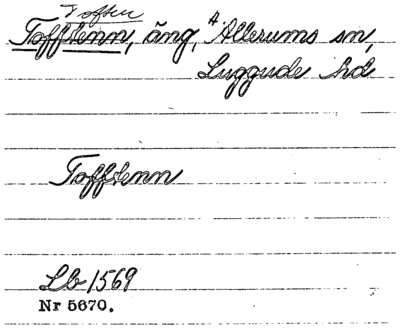 Toften
Tofftenn, äng, Allerums sn,
Luggude hd
Tofftenn
Lb 1569
Nr 5670.